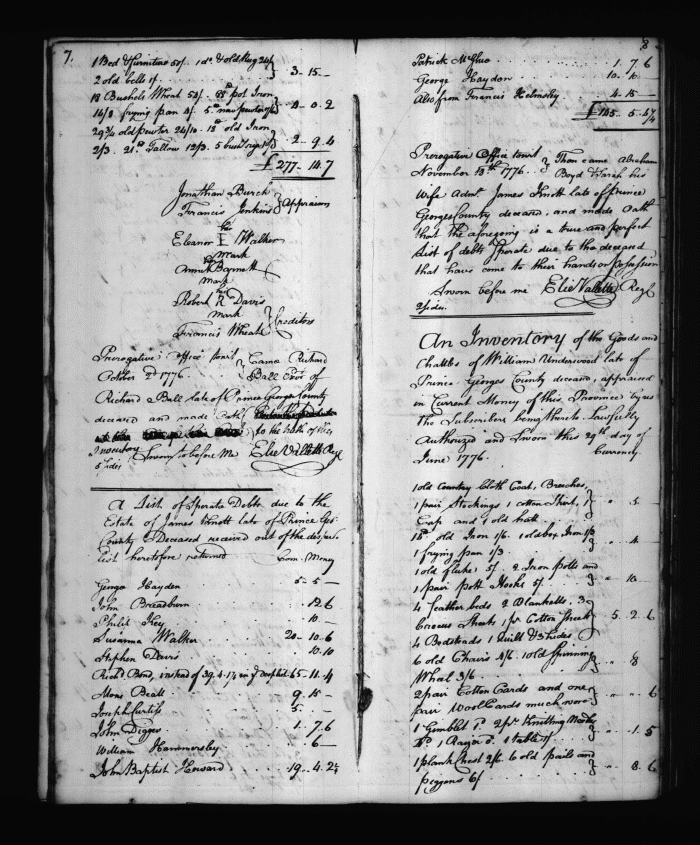 7.
1 Bed & furniture 50/. 1 do. & old Rug 24/
2 old bells 1/. } 3 - 15 -
18 Bushels Wheat 52/. 55lb pot Iron
16/8 frying pan 4/. 5lb new pewter 7/6 } 4 - 0 - 2
29 3/4 old pewter 24/10. 18lb old Iron
2/3. 21lb Tallow 12/3. 5 bush } 2 - 9 - 4
£ 277 - 14 - 7
Jonathan Burch
Francis Jenkins } Appraisers
her
Eleanor E Walker
mark
Ann Barnett
mark
his
Robert R Davis
mark
Francis Wheat } Creditors
Prerogative Office towit } Came Richard
October 2d 1776. Ball Exor of
Richard Ball late of Prince Georges County
deceased and made Oath
to the truth of this
Inventory Sworn to before me Elie Vallette Regr
5 sides
A List of Sperate Debts due to the
Estate of James Knott late of Prince Geo's
County Deceased received out of the desperate
List heretofore returned Com. Money
George Hayden 5 - 5 -
John Breadburn . 12 6
Philip Key . 10 -
Susanna Walker 20 - 10 - 6
Stephen Davis . 10 - 10
Richd Bond, instead of 39.4.1 1/4 in ye desperate 65 - 11 - 4
Mone Beall 9 - 15 -
Joseph Curtiss 5 - . -
John Digges 1 - 7 - 6
William Hammersley - 6 -
John Baptist Howard 19 - 4 - 2 1/4
8
Patrick McGlue 1 . 7 . 6
George Hayden 10 . 10 .
Also from Francis Helmsley 4 - 15 -
£ 145 . 5 .
Prerogative Office towit } Then came Abraham
November 13th 1776. Boyd & Sarah his
Wife Admx James Knott late of Prince
Georges County deceased, and made Oath
that the aforegoing is a true and perfect
List of debts Sperate due to the deceased
that have come to their hands or possession
Sworn before me Elie Vallette Regr
2 sides.
An Inventory of the Goods and
Chattles of William Underwood late of
Prince Georges County deceased, appraised
in Current Money of this Province by us
the Subscribers being thereto lawfully
Authorized and Sworn this 29th day of
June 1776. Currency.
1 old Country Cloth Coat, Breeches,
1 pair Stockings 1 cotton Shirt, 1
Cap and 1 old hatt } " 5 . -
18lb old Iron 1/6. 1 old box Iron 1/3
1 frying pan 1/3 } " 4 -
1 old fluke 5/. 2 Iron potts and
1 pair pott Hooks 5/. } " 10 -
4 feather beds 2 Blanketts. 3
Sheets 1 pr Cotton Sheets
4 Bedsteads 1 Quilt & 3 hides } 5 . 2 . 6
6 old Chairs 4/6. 1 old Spinning
Wheel 3/6 } " 8
2 pair Cotton Cards and one
pair Wool Cards much worn } " " 6
1 Gimblet 2 pr Knitting Needles
1 Razor 1 table } " 1 . 5
1 plank Chest 2/6. 6 old pails and
peggons 6/ } " 8 . 6